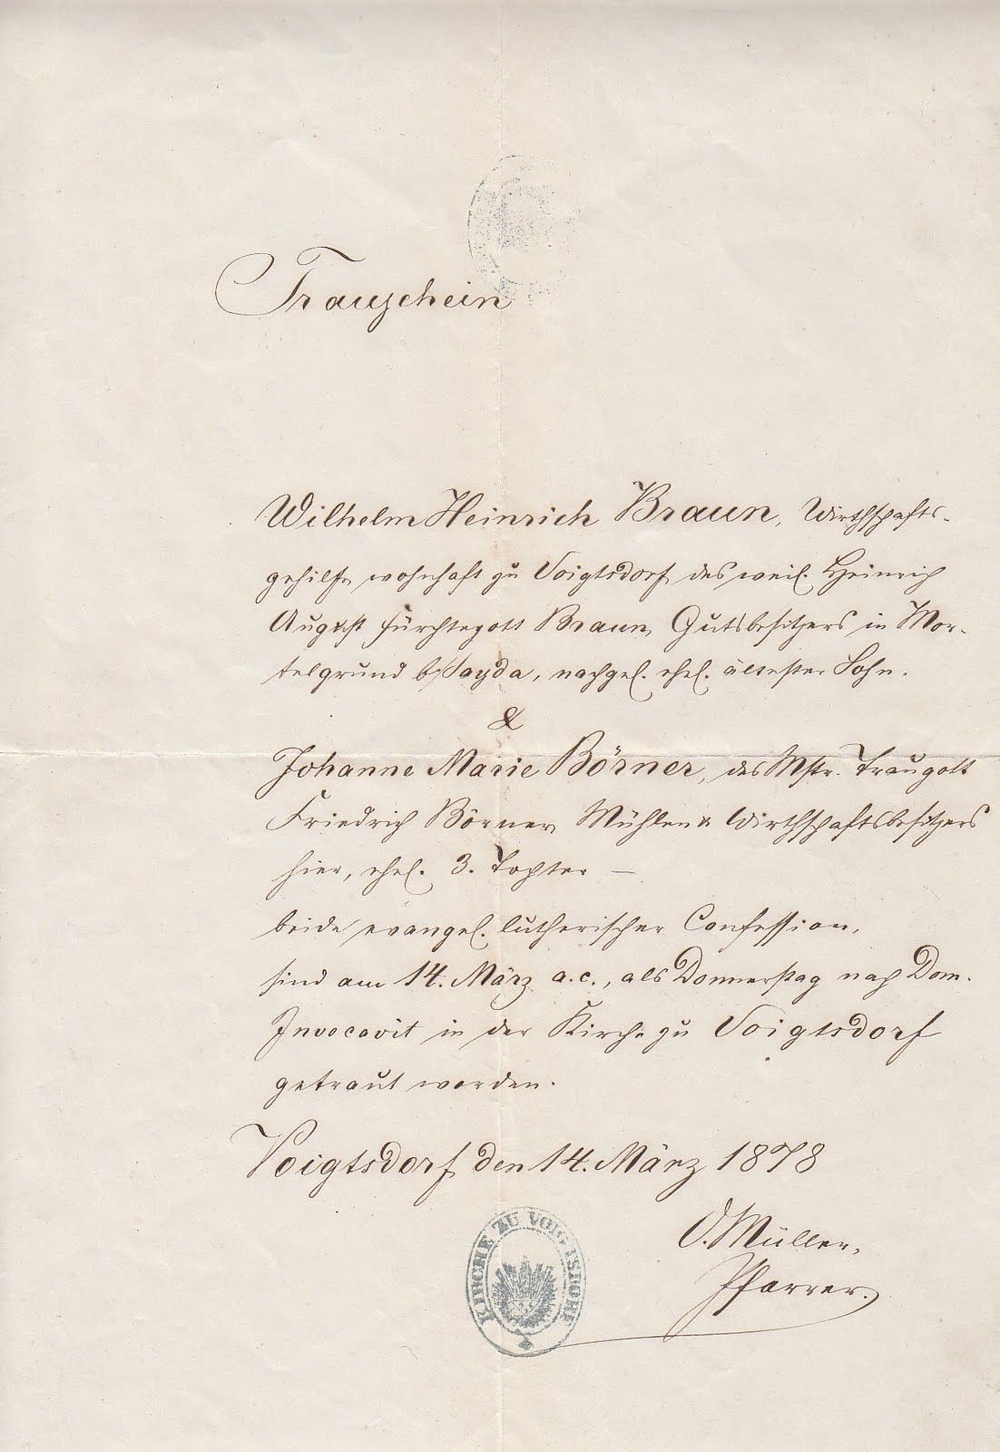 Trauschein
Wilhelm Heinrich Braun, Wirthschafts-
gehilfe wohnhaft zu Voigtsdorf, des weil. Heinrich
August Fürchtegott Braun, Gutsbesitzers in Mor-
telgrund b/Sayda, nachgel. ehel. ältester Sohn.
&
Johanne Marie Börner, des Mstr. Traugott
Friedrich Börner Mühlen & Wirthschaftsbesitzers
hier, ehel. 3. Tochter —
beide evangel. lutherischer Confession,
sind am 14. März a.c., als Donnerstag nach Dom.
Invocavit in der Kirche zu Voigtsdorf
getraut worden.
Voigtsdorf, den 14. März 1878
O. Müller,
Pfarrer.
KIRCHE ZU VOIGTSDORF